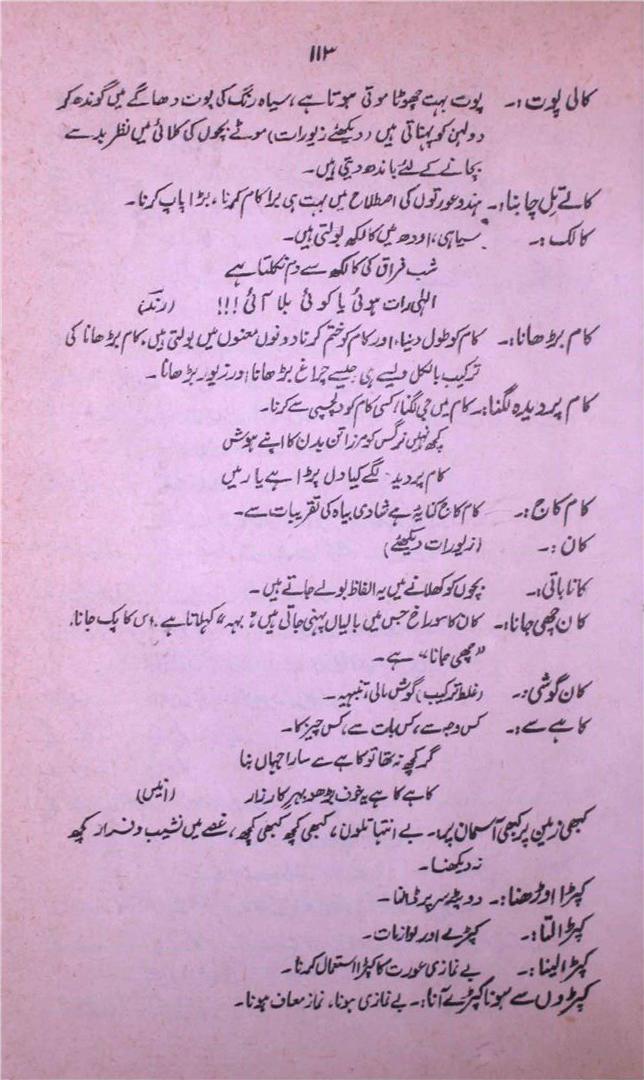 ۱۱۳
کالی پوت :۔ پوت بہت چھوٹا موتی ہوتا ہے، سیاہ رنگ کی پوت دھاگے میں گوندھ کر
دولہن کو پہناتی ہیں (دیکھئے زیورات) موٹے بچوں کی کلائی میں نظر بد سے
بچانے کے لئے باندھ دیتی ہیں۔
کالے تل چابنا :۔ ہندو عورتوں کی اصطلاح میں بہت ہی برا کام کرنا، بڑا پاپ کرنا۔
کالک :۔ سیاہی، اودھ میں کالکھ بولتی ہیں۔
شب فراق کی کالکھ سے دم نکلتا ہے
الٰہی رات ہوئی یا کوئی بلا آئی !!! (رند)
کام بڑھانا :۔ کام کو طول دینا، اور کام کو ختم کرنا دونوں معنوں میں بولتی ہیں، کام بڑھانا کی
ترکیب بالکل ویسے ہی جیسے چراغ بڑھانا اور زیور بڑھانا۔
کام پر دیدہ لگنا :۔ کام میں جی لگنا، کسی کام کو دلچسپی سے کرنا۔
کچھ نہیں نرگس کو مرزا تن بدن کا اپنے ہوش
کام پر دیدہ لگے کیا دل پڑا ہے یار میں
کام کاج :۔ کام کاج کنایۃً ہے شادی بیاہ کی تقریبات سے۔
کان :۔ (زیورات دیکھئے)
کانا باتی :۔ بچوں کو کھلانے میں یہ الفاظ بولے جاتے ہیں۔
کان چھی جانا :۔ کان کا سوراخ جس میں بالیاں پہنی جاتی ہیں "بہہ" کہلاتا ہے۔ اس کا پک جانا،
"چھی جانا" ہے۔
کان گوشی :۔ (غلط ترکیب) گوش مالی، تنبیہہ۔
کاہے سے :۔ کس وجہ سے، کس بات سے، کس چیز کا۔
گر کچھ نہ تھا تو کاہے سے سارا جہاں بنا
کاہے کا ہے یہ خوف بڑھو بہر کارزار (انیس)
کبھی زمین پر کبھی آسمان پر :۔ بے انتہا تلون، کبھی کچھ کبھی کچھ، غصے میں نشیب و فراز کچھ
نہ دیکھنا۔
کپڑا اوڑھنا :۔ دوپٹہ سر پر ڈالنا۔
کپڑا لتا :۔ کپڑے اور لوازمات۔
کپڑا لینا :۔ بے نمازی عورت کا کپڑا استعمال کرنا۔
کپڑوں سے ہونا کپڑے آنا :۔ بے نمازی ہونا، نماز معاف ہونا۔